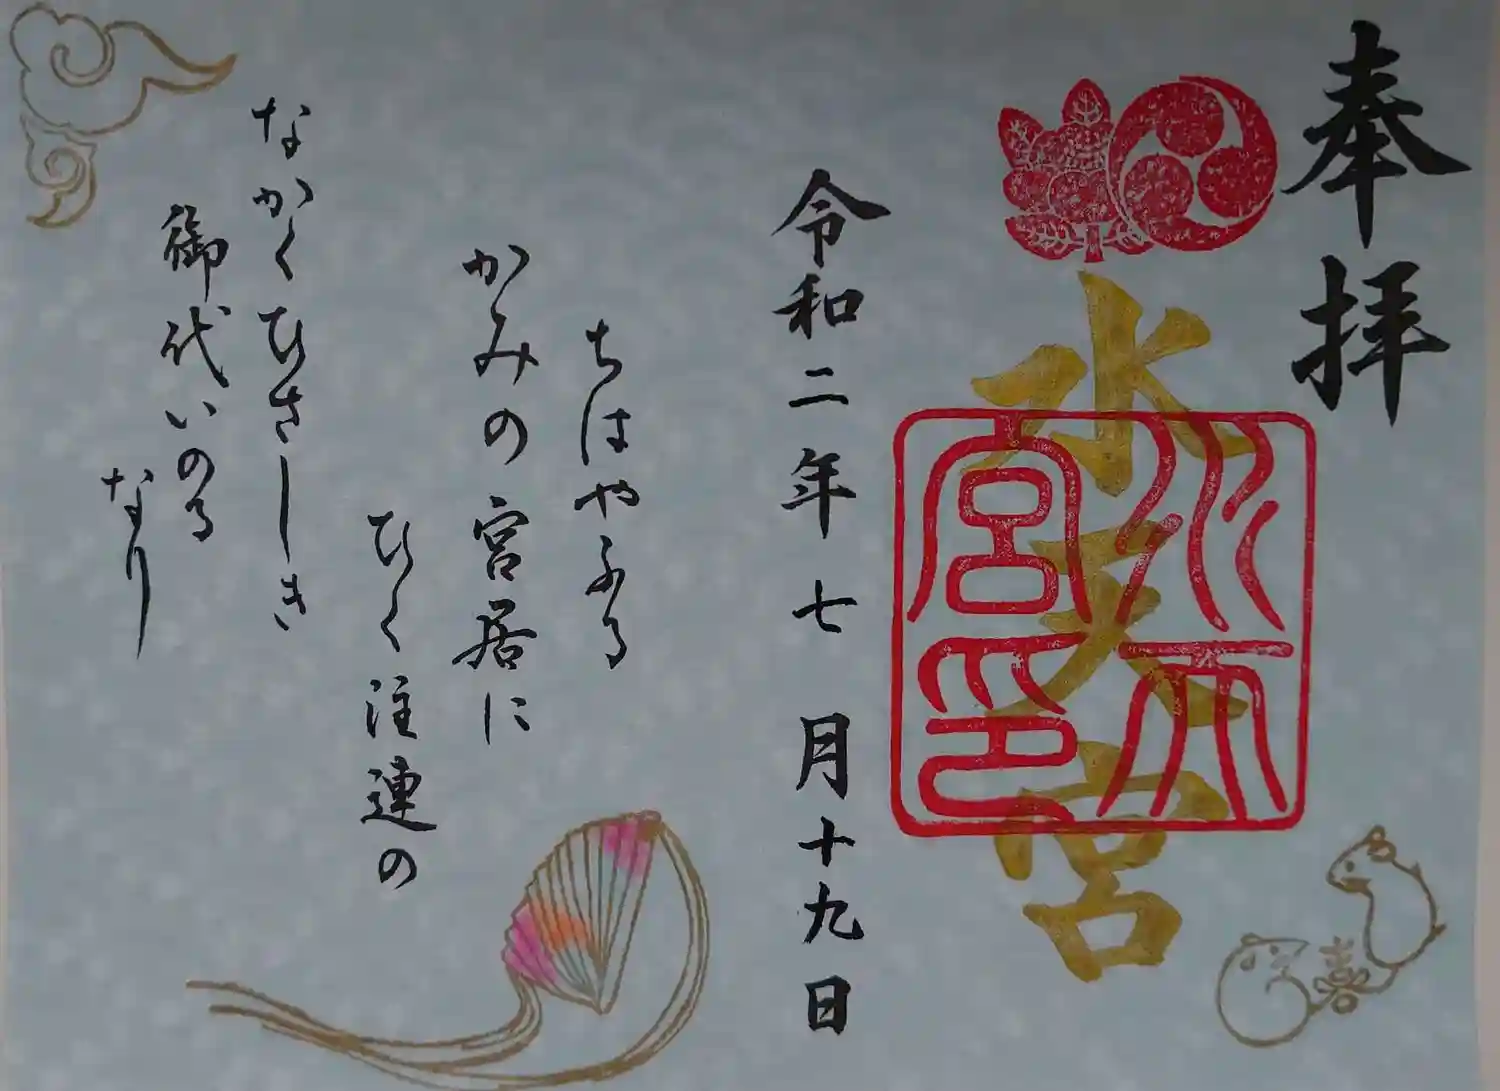 奉拝
水天宮
水天宮印
令和二年七月十九日
ちはやふる
かみの宮居に
ひく注連の
なかくひさしき
御代いのる
なり
喜